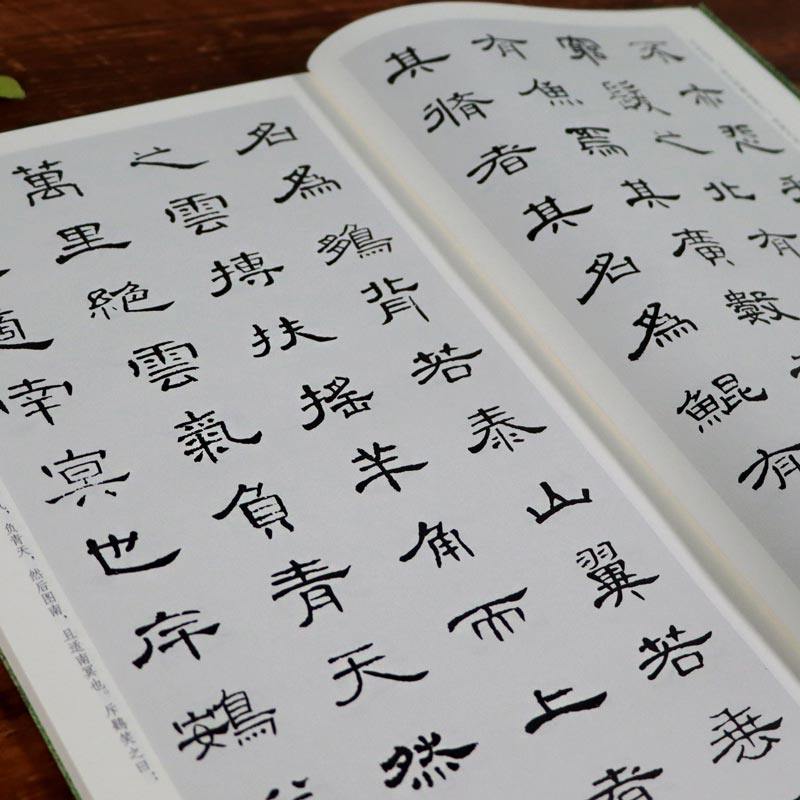 不亦悲乎
窮髮之北有
有魚焉其廣數
其脩者其名為鯤有
名為鵬背若泰山翼若垂
之雲摶扶搖羊角而上者
萬里絕雲氣負青天然
適南冥也斥鴳
负青天，然后图南，且适南冥也。斥鴳笑之曰：